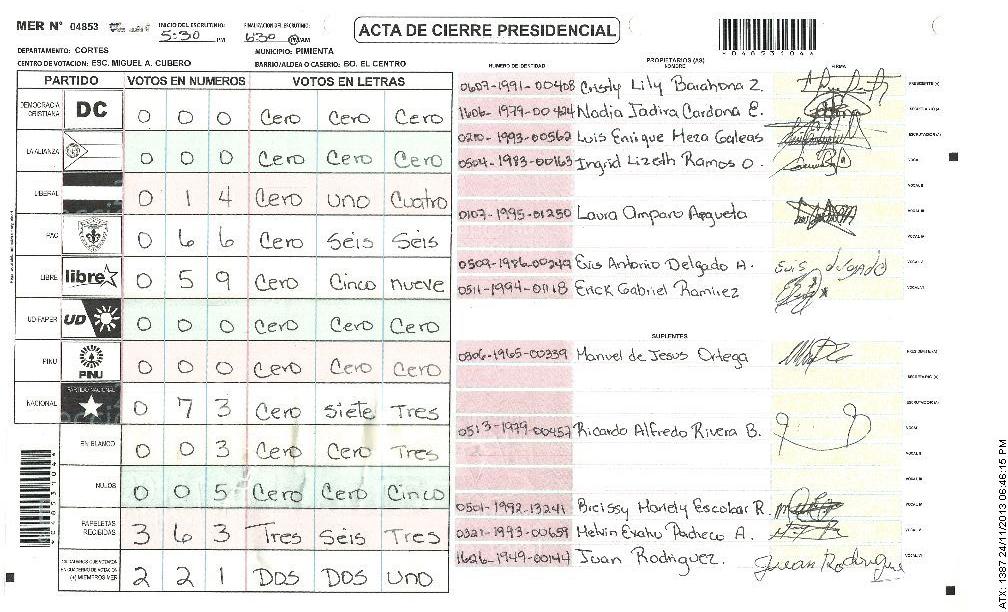 MER N° 04853
INICIO DEL ESCRUTINIO: 5:30 PM
FINALIZACION DEL ESCRUTINIO: 6:30 AM
ACTA DE CIERRE PRESIDENCIAL
DEPARTAMENTO: CORTES
MUNICIPIO: PIMIENTA
CENTRO DE VOTACION: ESC. MIGUEL A. CUBERO
BARRIO/ALDEA O CASERIO: BO. EL CENTRO
PARTIDO VOTOS EN NUMEROS VOTOS EN LETRAS
DEMOCRACIA CRISTIANA DC 0 0 0 Cero Cero Cero
LA ALIANZA 0 0 0 Cero Cero Cero
LIBERAL 0 1 4 Cero uno Cuatro
PAC 0 6 6 Cero Seis Seis
LIBRE libre 0 5 9 Cero Cinco nueve
UD-FAPER UD 0 0 0 Cero Cero Cero
PINU PINU 0 0 0 Cero Cero Cero
NACIONAL PARTIDO NACIONAL 0 7 3 Cero Siete Tres
EN BLANCO 0 0 3 Cero Cero Tres
NULOS 0 0 5 Cero Cero Cinco
PAPELETAS RECIBIDAS 3 6 3 Tres Seis Tres
(+) MIEMBROS MER 2 2 1 DOS DOS uno
NUMERO DE IDENTIDAD
PROPIETARIOS (AS)
NOMBRE
FIRMA
0607-1991-00408 Cristly Lily Barahona Z. PRESIDENTE (A)
1606-1979-00424 Nadia Jadira Cardona E. SECRETARIO (A)
0210-1993-00562 Luis Enrique Meza Galeas ESCRUTADOR (A)
0504-1983-00163 Ingrid Lizeth Ramos O. VOCAL I
VOCAL II
0107-1995-01250 Laura Amparo Argueta VOCAL III
VOCAL IV
0509-1986-00249 Elvis Antonio Delgado A. VOCAL V
0511-1994-01118 Erick Gabriel Ramirez VOCAL VI
SUPLENTES
0306-1965-00339 Manuel de Jesus Ortega PRESIDENTE (A)
SECRETARIO (A)
ESCRUTADOR (A)
0513-1979-00457 Ricardo Alfredo Rivera B. VOCAL I
VOCAL II
VOCAL III
0501-1992-13241 Breissy Mariely Escobar R. VOCAL IV
0321-1993-00659 Melvin Evahu Pacheco A. VOCAL V
1626-1949-00144 Juan Rodriguez. Juan Rodriguez VOCAL VI
ATX: 1387 24/11/2013 06:46:15 PM